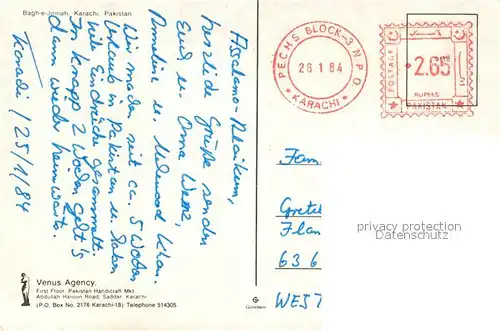 Bagh-e-Jinnah, Karachi, Pakistan
Karachi, 25/1/84
Assalamo-Alaikum,
herzliche Grüße senden
Euch u. Oma
Annelie u. Mahmood Khan.
Wir machen seit ca. 5 Wochen
Urlaub in Pakistan u. haben
viele Eindrücke gesammelt.
In knapp 2 Wochen geht's
dann wieder heimwärts.
PECHS BLOCK-3 N.P.O.
26 1 84
KARACHI
POSTAGE
2.65
RUPEES
PAKISTAN
Fam
Gretel
Flan
636
WEST
privacy protection
Venus Agency.
First Floor, Pakistan Handicraft Mkt.
Abdullah Haroon Road, Saddar, Karachi
(P.O. Box No. 2178 Karachi-18) Telephone 514305.